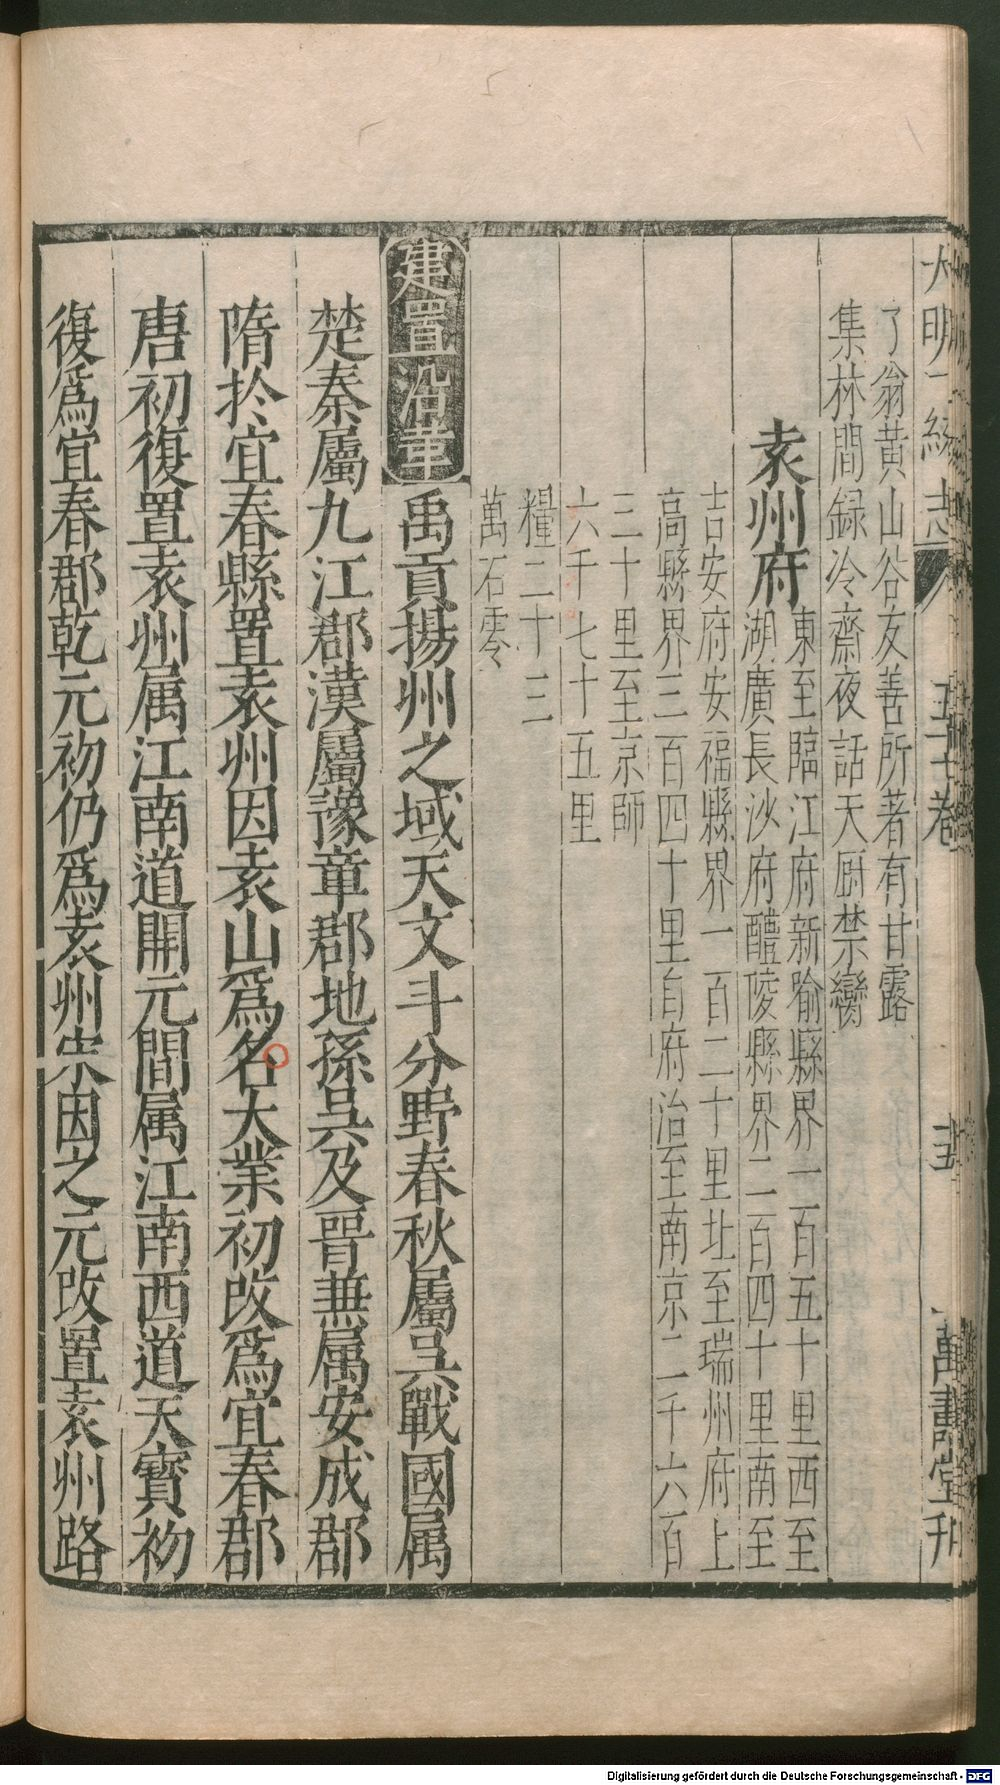 大明一統志 五十七卷 萬壽堂刊
了翁黃山谷友善所著有甘露
集林間録冷齋夜話天厨禁臠
袁州府
東至臨江府新喻縣界一百五十里西至
湖廣長沙府醴陵縣界二百四十里南至
吉安府安福縣界一百二十里北至瑞州府上
高縣界三百四十里自府治至南京二千六百
三十里至京師
六千七十五里
糧二十三
萬石零
建置沿革 禹貢揚州之域天文斗分野春秋屬吳戰國属
楚秦屬九江郡漢屬豫章郡地孫吳及晉兼属安成郡
隋於宜春縣置袁州因袁山爲名大業初改爲宜春郡
唐初復置袁州属江南道開元間属江南西道天寳初
復爲宜春郡乾元初仍爲袁州宋因之元改置袁州路
Digitalisierung gefördert durch die Deutsche Forschungsgemeinschaft - DFG